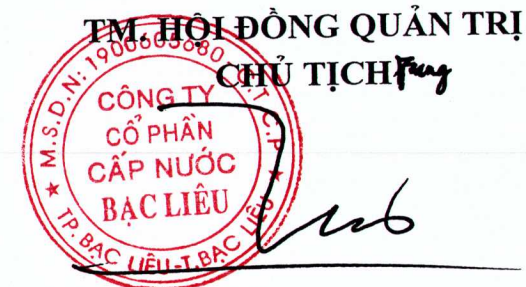 TM. HỘI ĐỒNG QUẢN TRỊ
CHỦ TỊCH
M.S.D.N: 1900605680 C.T.C.P
CÔNG TY
CỔ PHẦN
CẤP NƯỚC
BẠC LIÊU
TP. BẠC LIÊU-T.BẠC LIÊU